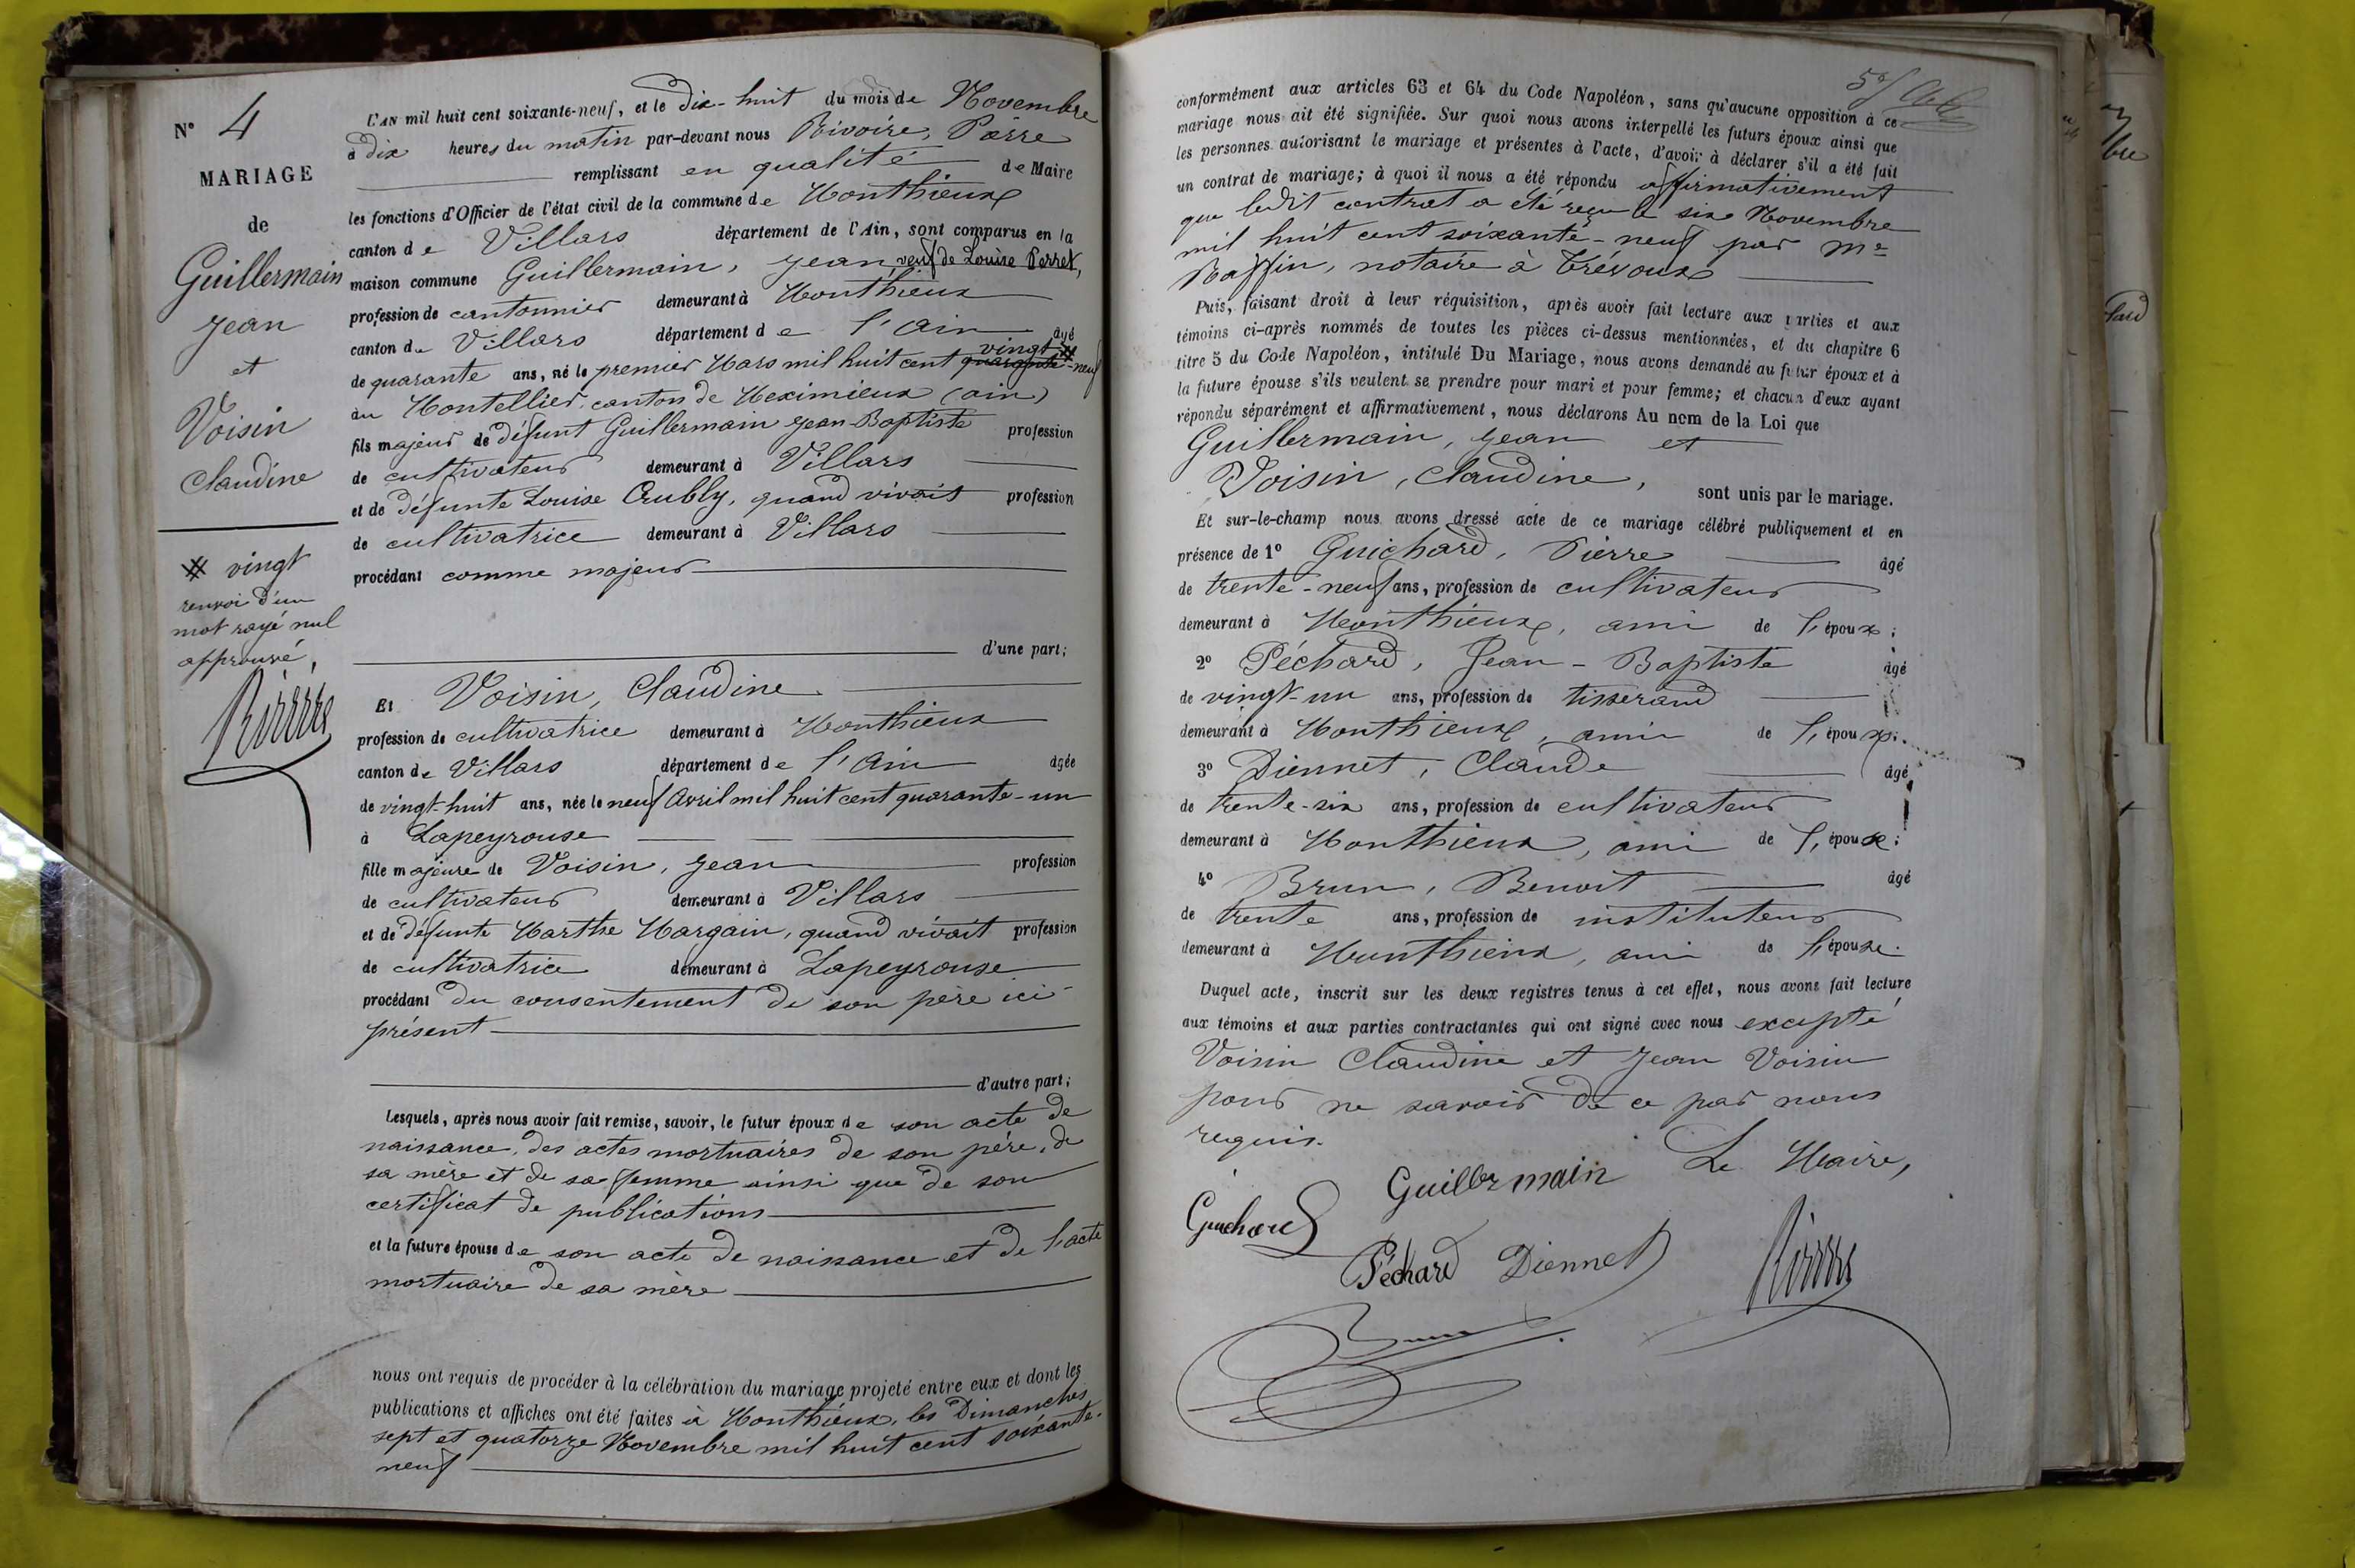 N° 4
MARIAGE
de
Guillermain
Jean
et
Voisin
Claudine
# vingt
renvoi d'un
mot rayé nul
approuvé,
Rivoire
L'AN mil huit cent soixante-neuf, et le dix-huit du mois de Novembre
à dix heures du matin par-devant nous Rivoire, Pierre
remplissant en qualité de Maire
les fonctions d'Officier de l'état civil de la commune de Monthieux
canton de Villars département de l'Ain, sont comparus en la
maison commune Guillermain, Jean veuf de Louise Perret,
profession de cantonnier demeurant à Monthieux
canton de Villars département de l'Ain âgé
vingt #
de quarante ans, né le premier Mars mil huit cent quarante-neuf
au Montellier, canton de Meximieux (ain)
fils majeur de défunt Guillermain Jean-Baptiste profession
de cultivateur demeurant à Villars
et de défunte Louise Crubly, quand vivait profession
de cultivatrice demeurant à Villars
procédant comme majeur
d'une part;
Et Voisin, Claudine
profession de cultivatrice demeurant à Monthieux
canton de Villars département de l'Ain âgée
de vingt-huit ans, née le neuf Avril mil huit cent quarante-un
à Lapeyrouse
fille majeure de Voisin, Jean profession
de cultivateur demeurant à Villars
et de défunte Marthe Margain, quand vivait profession
de cultivatrice demeurant à Lapeyrouse
procédant du consentement de son père ici
présent
d'autre part;
Lesquels, après nous avoir fait remise, savoir, le futur époux de son acte de
naissance, des actes mortuaires de son père, de
sa mère et de sa femme ainsi que de son
certificat de publications
et la future épouse de son acte de naissance et de l'acte
mortuaire de sa mère
nous ont requis de procéder à la célébration du mariage projeté entre eux et dont les
publications et affiches ont été faites à Monthieux, les Dimanches
sept et quatorze Novembre mil huit cent soixante-
neuf
conformément aux articles 63 et 64 du Code Napoléon, sans qu'aucune opposition à ce
mariage nous ait été signifiée. Sur quoi nous avons interpellé les futurs époux ainsi que
les personnes autorisant le mariage et présentes à l'acte, d'avoir à déclarer s'il a été fait
un contrat de mariage; à quoi il nous a été répondu affirmativement
que ledit contrat a été reçu le six Novembre
mil huit cent soixante-neuf par Me
Raffin, notaire à Trévoux
Puis, faisant droit à leur réquisition, après avoir fait lecture aux parties et aux
témoins ci-après nommés de toutes les pièces ci-dessus mentionnées, et du chapitre 6
titre 5 du Code Napoléon, intitulé Du Mariage, nous avons demandé au futur époux et à
la future épouse s'ils veulent se prendre pour mari et pour femme; et chacun d'eux ayant
répondu séparément et affirmativement, nous déclarons Au nom de la Loi que
Guillermain, Jean et
Voisin, Claudine, sont unis par le mariage.
Et sur-le-champ nous avons dressé acte de ce mariage célébré publiquement et en
présence de 1° Guichard, Pierre âgé
de trente-neuf ans, profession de cultivateur
demeurant à Monthieux, ami de l'époux;
2° Péchard, Jean-Baptiste âgé
de vingt-un ans, profession de tisserand
demeurant à Monthieux, ami de l'époux;
3° Diennet, Claude âgé
de trente-six ans, profession de cultivateur
demeurant à Monthieux, ami de l'épouse;
4° Brun, Benoit âgé
de trente ans, profession de instituteur
demeurant à Monthieux, ami de l'épouse.
Duquel acte, inscrit sur les deux registres tenus à cet effet, nous avons fait lecture
aux témoins et aux parties contractantes qui ont signé avec nous excepté
Voisin Claudine et Jean Voisin
pour ne savoir de ce par nous
requis.
Guillermain Le Maire,
Guichard
Péchard Diennet Rivoire
Brun